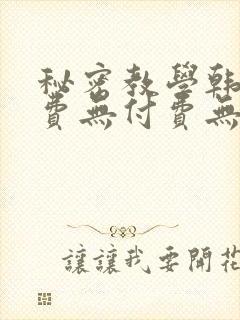 秘密教學韓
費無付費無
讓讓我要開花